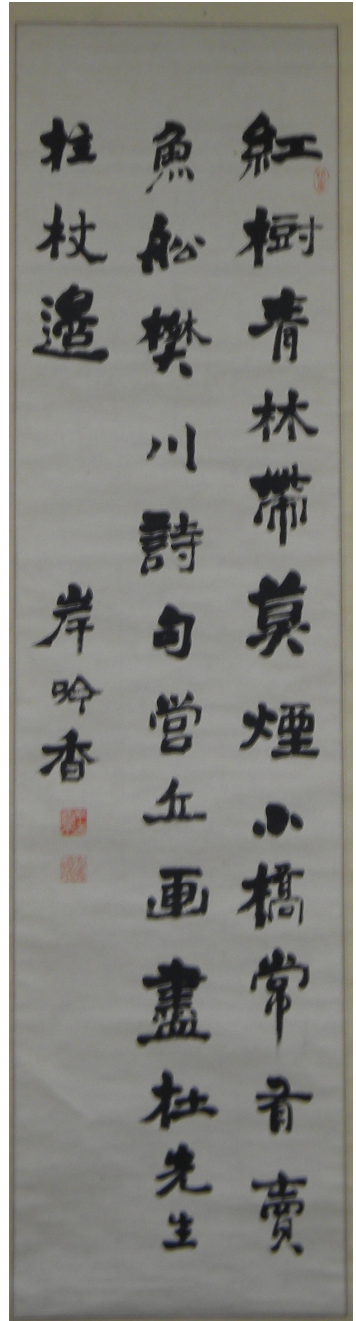 紅樹青林帶莫煙小橋常有賣
魚船樊川詩句營丘画盡杜先生
拄杖邉
岸吟香